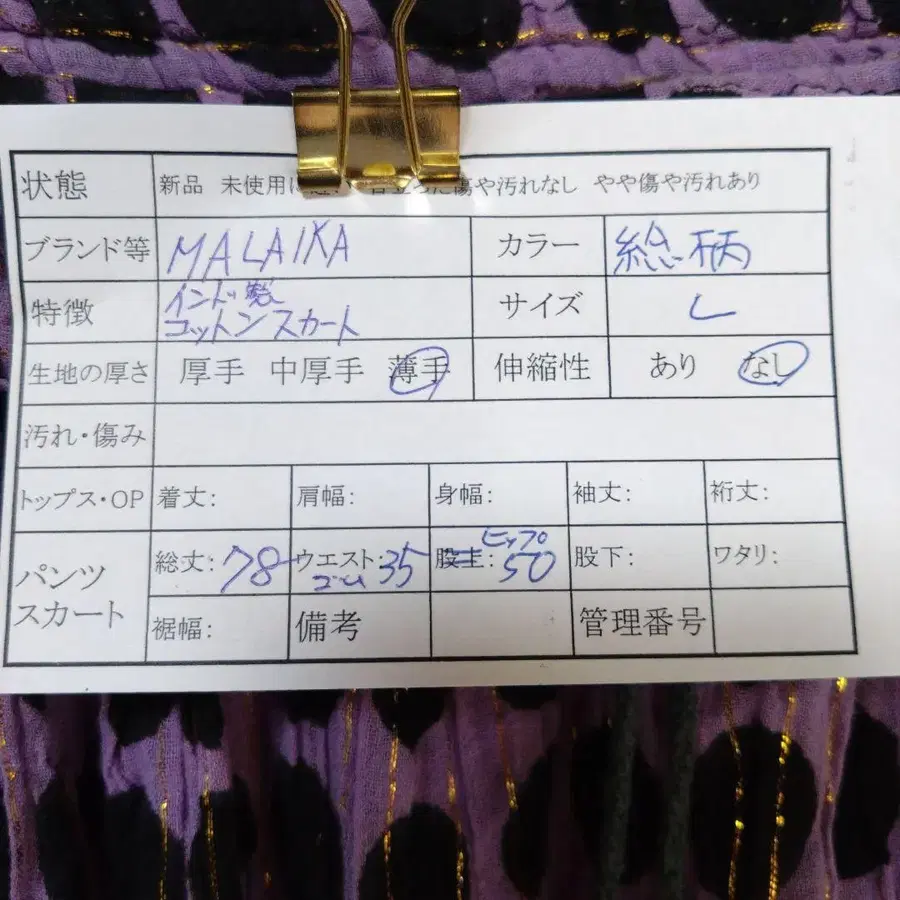 状態 新品 未使用に 傷や汚れなし やや傷や汚れあり
ブランド等 MALAIKA カラー 総柄
特徴 インド製 サイズ L
コットンスカート
生地の厚さ 厚手 中厚手 薄手 伸縮性 あり なし
汚れ・傷み
トップス・OP 着丈: 肩幅: 身幅: 袖丈: 裄丈:
パンツ スカート 総丈:78 ウエスト:35 ゴム 股上: ヒップ50 股下: ワタリ:
裾幅: 備考 管理番号